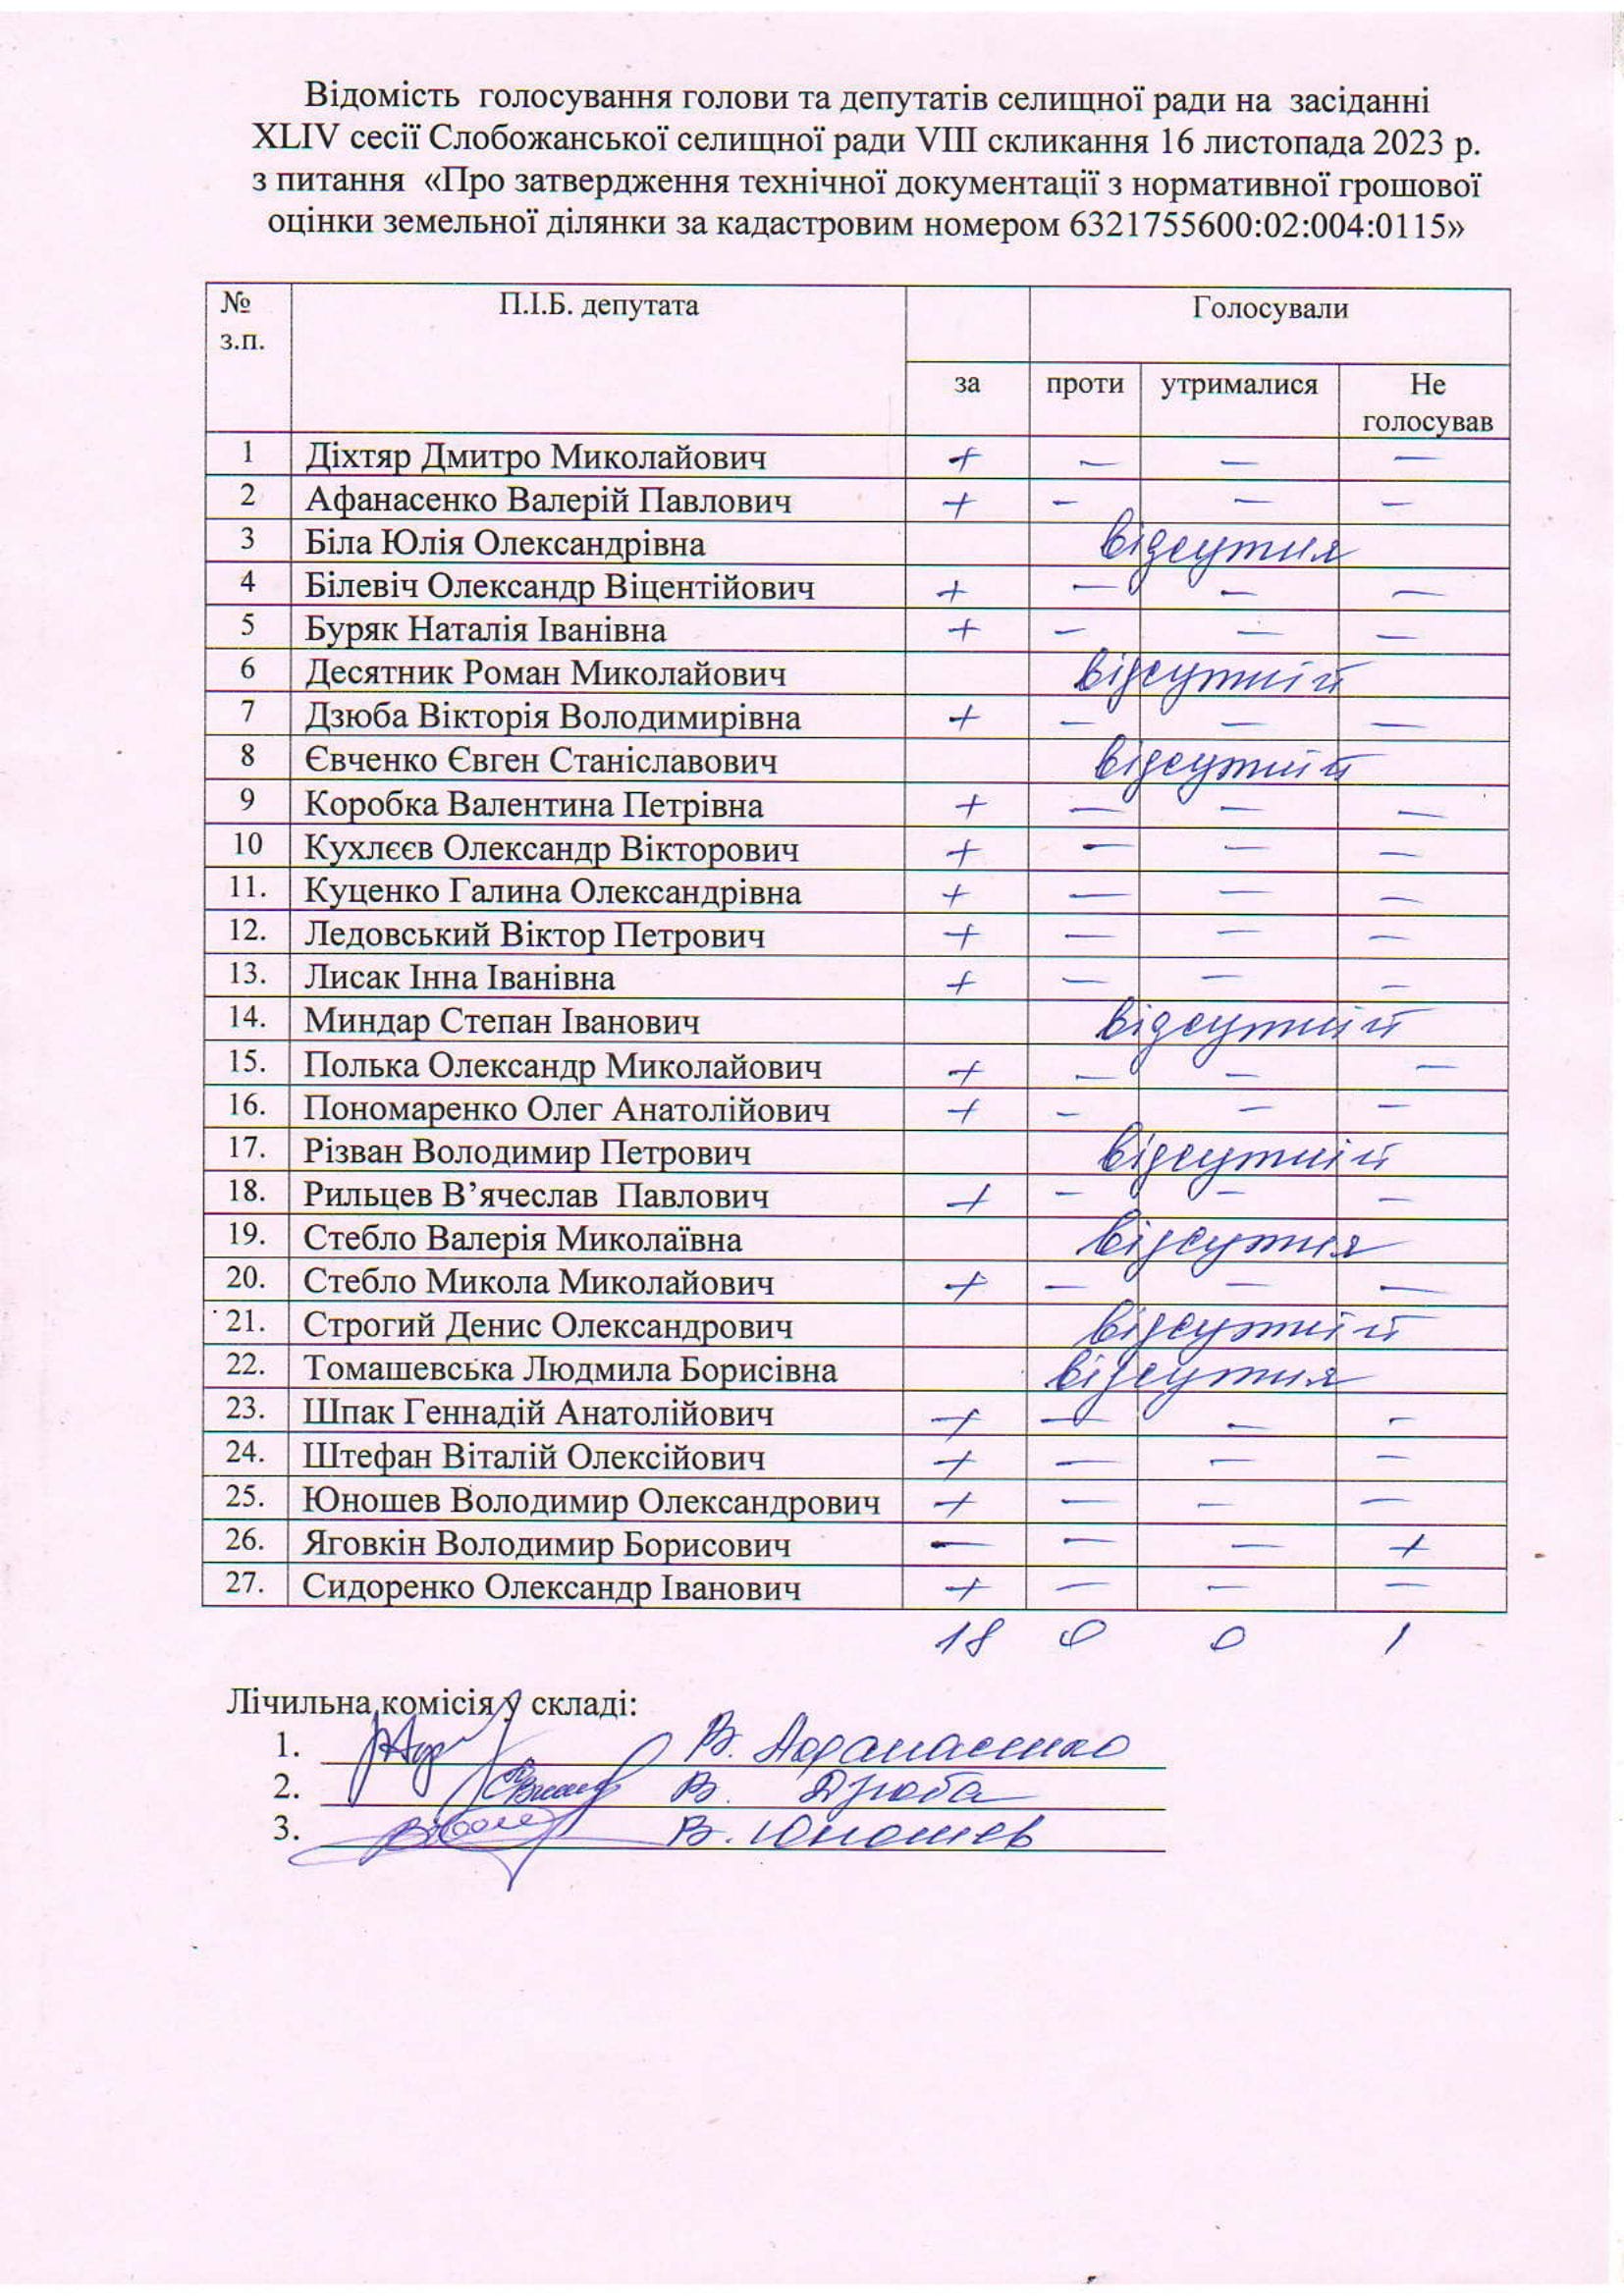 Відомість голосування голови та депутатів селищної ради на засіданні
XLIV сесії Слобожанської селищної ради VIII скликання 16 листопада 2023 р.
з питання «Про затвердження технічної документації з нормативної грошової
оцінки земельної ділянки за кадастровим номером 6321755600:02:004:0115»
№ з.п. П.І.Б. депутата Голосували
за проти утрималися Не голосував
1 Діхтяр Дмитро Миколайович + — — —
2 Афанасенко Валерій Павлович + — — —
3 Біла Юлія Олександрівна відсутня
4 Білевіч Олександр Віцентійович + — — —
5 Буряк Наталія Іванівна + — — —
6 Десятник Роман Миколайович відсутній
7 Дзюба Вікторія Володимирівна + — — —
8 Євченко Євген Станіславович відсутній
9 Коробка Валентина Петрівна + — — —
10 Кухлєєв Олександр Вікторович + — — —
11. Куценко Галина Олександрівна + — — —
12. Ледовський Віктор Петрович + — — —
13. Лисак Інна Іванівна + — — —
14. Миндар Степан Іванович відсутній
15. Полька Олександр Миколайович + — — —
16. Пономаренко Олег Анатолійович + — — —
17. Різван Володимир Петрович відсутній
18. Рильцев В’ячеслав Павлович + — — —
19. Стебло Валерія Миколаївна відсутня
20. Стебло Микола Миколайович + — — —
21. Строгий Денис Олександрович відсутній
22. Томашевська Людмила Борисівна відсутня
23. Шпак Геннадій Анатолійович + — — —
24. Штефан Віталій Олексійович + — — —
25. Юношев Володимир Олександрович + — — —
26. Яговкін Володимир Борисович — — — +
27. Сидоренко Олександр Іванович + — — —
18 0 0 1
Лічильна комісія у складі:
1. В. Афанасенко
2. В. Дзюба
3. В. Юношев